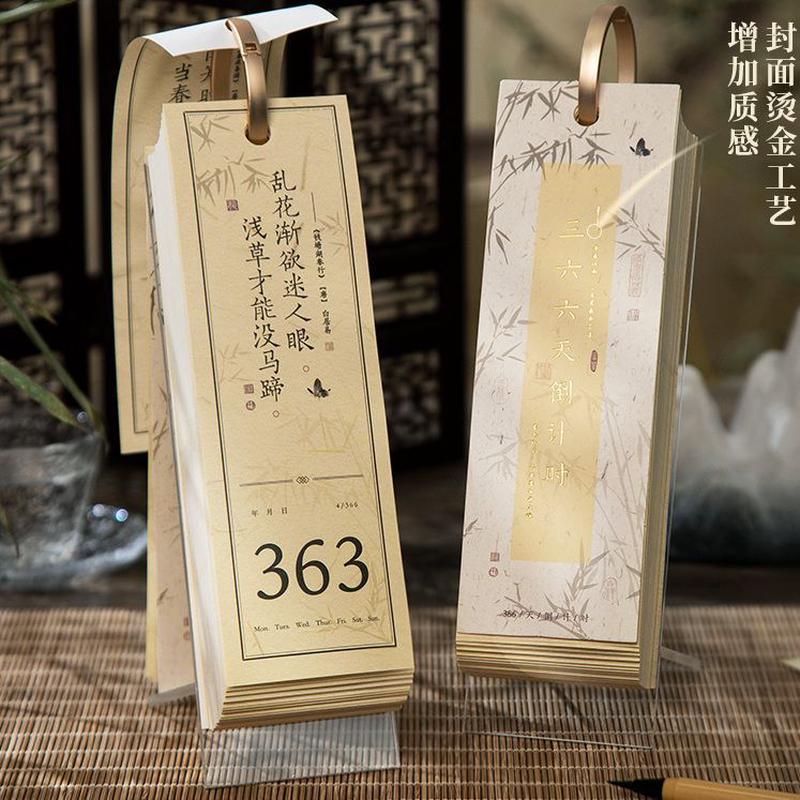 封面烫金工艺
增加质感
当春
乱花渐欲迷人眼
浅草才能没马蹄
《钱塘湖春行》【唐】 白居易
年 月 日
4/366
363
Mon. Tues. Wed. Thur. Fri. Sat. Sun.
三六六天倒计时
366/天/倒/计/时